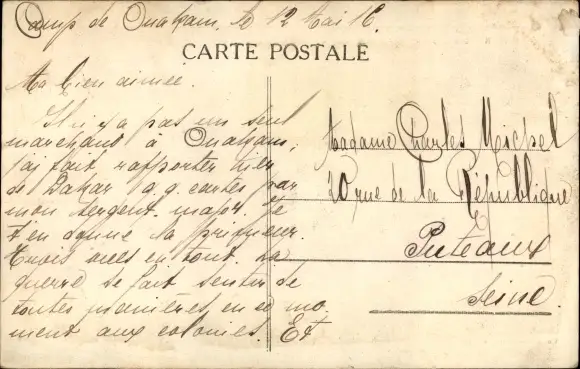 Camp de Ouakam, le 12 Mai 16.
CARTE POSTALE
Ma bien aimée.
Il n'y a pas un seul
marchand à Ouakam,
j'ai fait rapporter hier
de Dakar q.q. cartes par
mon sergent-major. Je
t'en donne la primeur.
trois vues en tout. La
guerre se fait sentir de
toutes manières en ce mo-
ment aux colonies. Et
Madame Charles Michel
20 rue de la République
Puteaux
Seine.